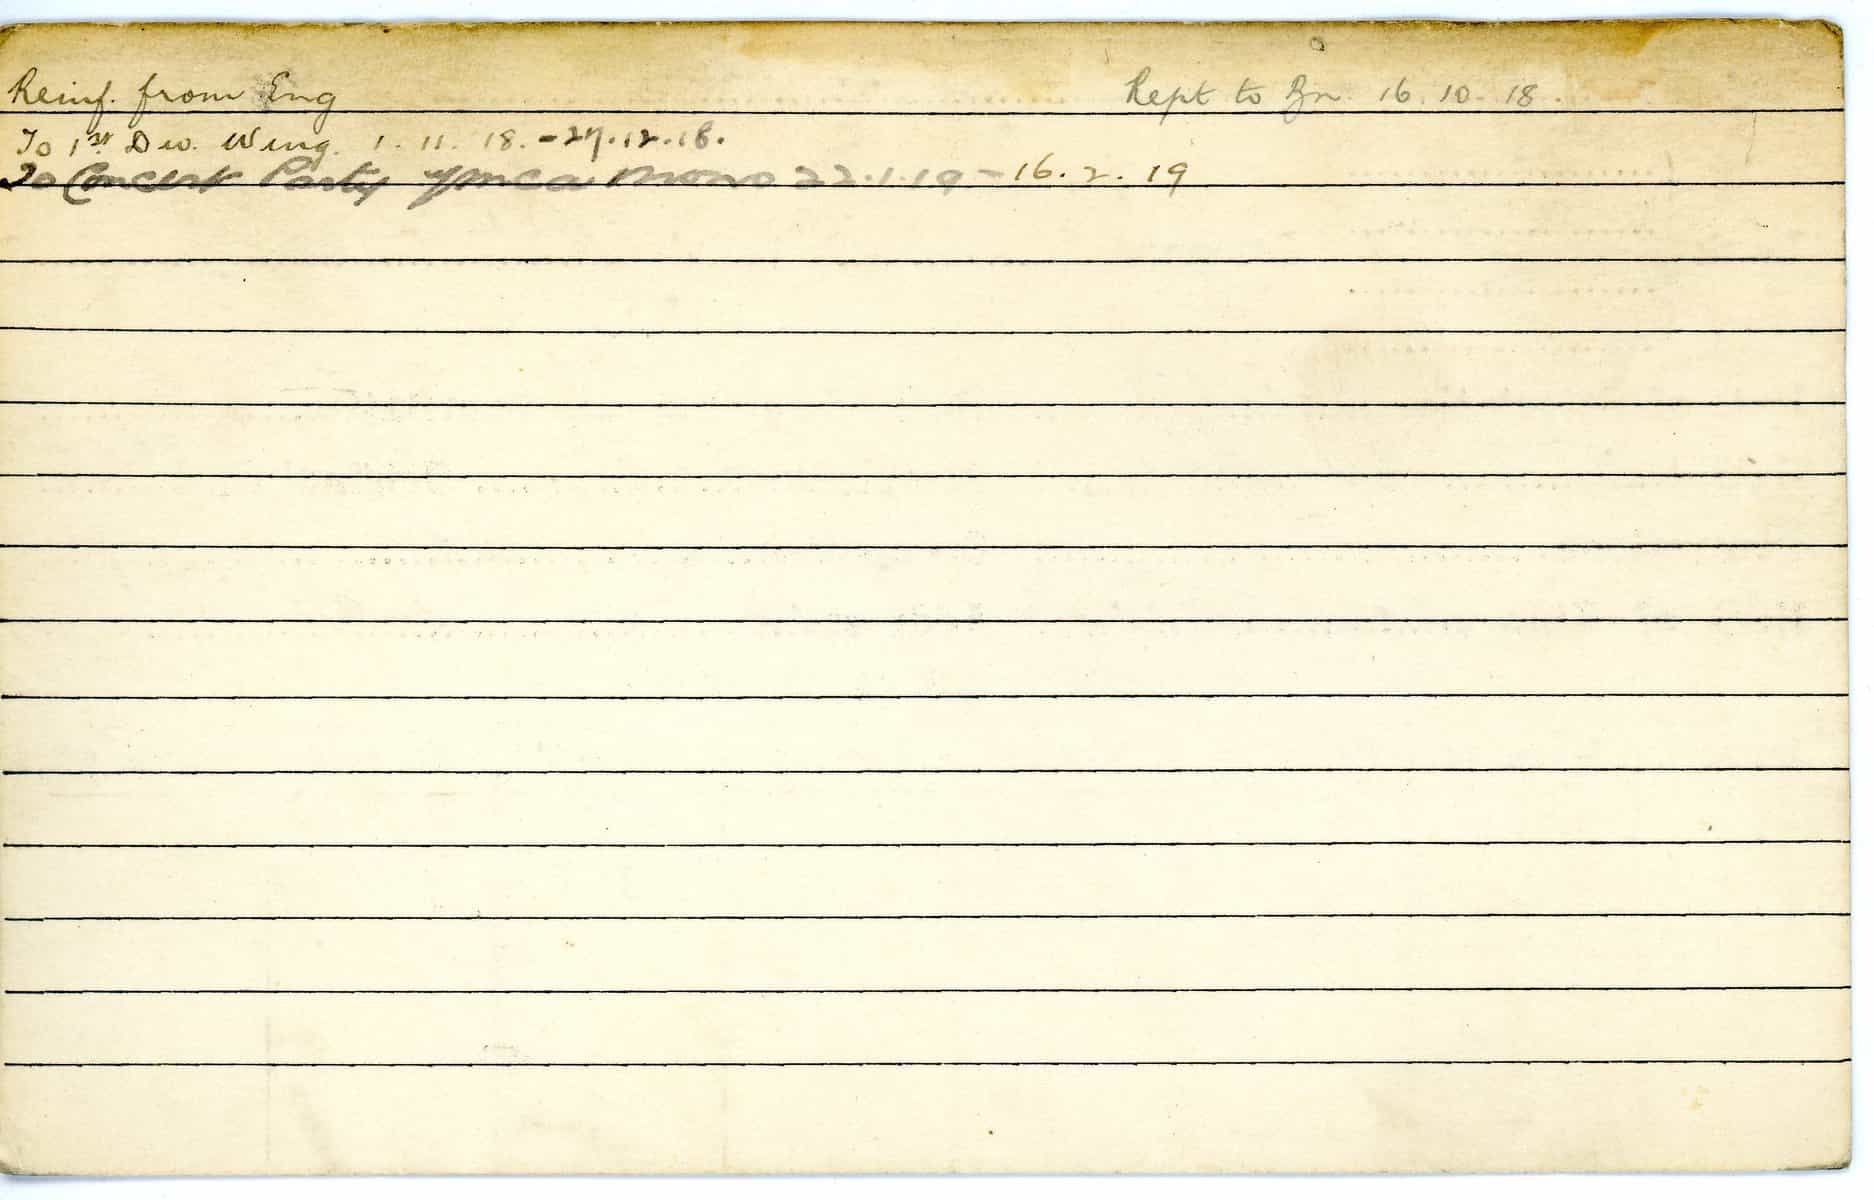 Reinf. from Eng Rept to Bn. 16. 10. 18.
To 1st Div. Wing. 1. 11. 18. - 27.12.18.
To Concert Party YMCA Mons 22.1.19 - 16. 2. 19